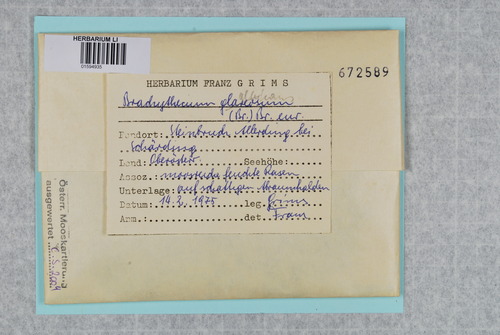 HERBARIUM LI
01594935
672589
HERBARIUM FRANZ GRIMS
Brachythecium glareosum
(Br.) Br. eur.
Fundort: Steinbruch Allerding bei
Schärding
Land: Oberösterr. Seehöhe:
Assoz.: moosreiche feuchte Rasen
Unterlage: auf schattigen Abraumhalden
Datum: 19.2.1975 leg. Grims
Anm.: det. Franz
Österr. Mooskartierung
ausgewertet